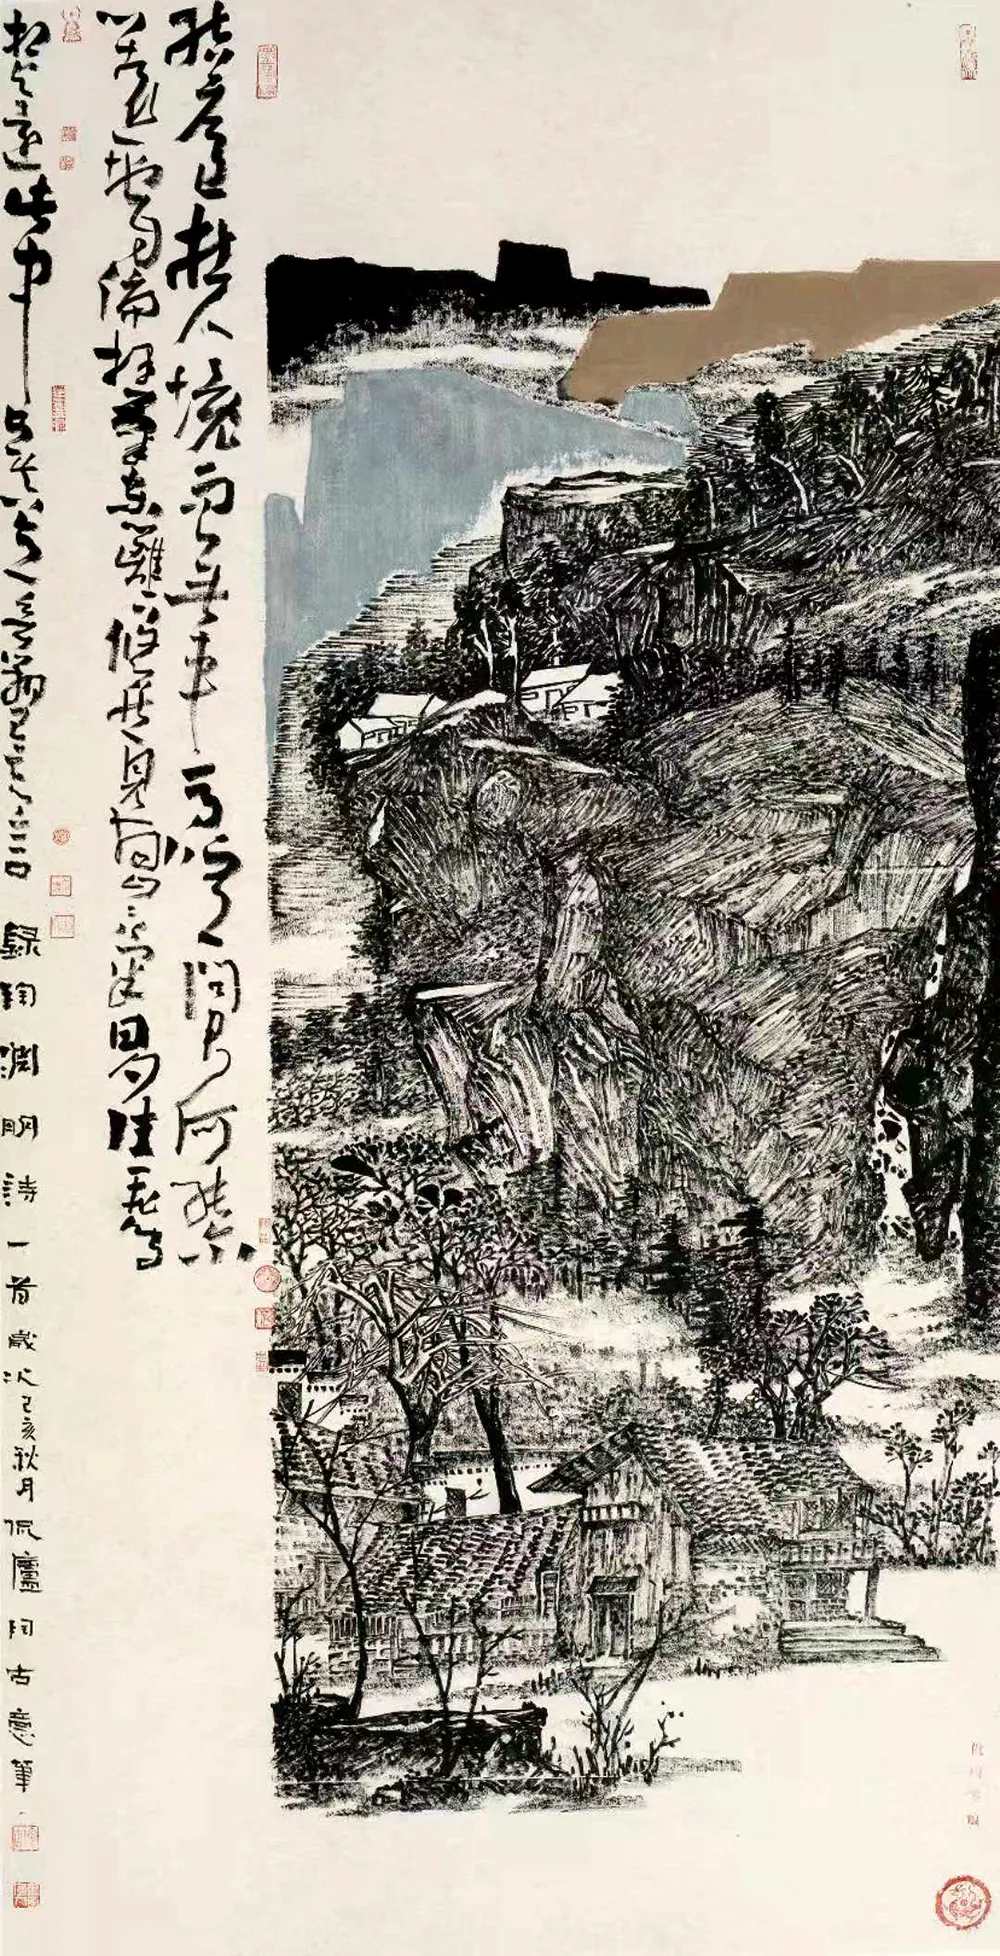 結廬在人境而無車馬喧問君何能爾
心遠地自偏採菊東籬下悠然見南山山氣日夕佳飛鳥
相與還此中有真意欲辨已忘言錄陶淵明詩一首歲次己亥秋月侃廬古意筆